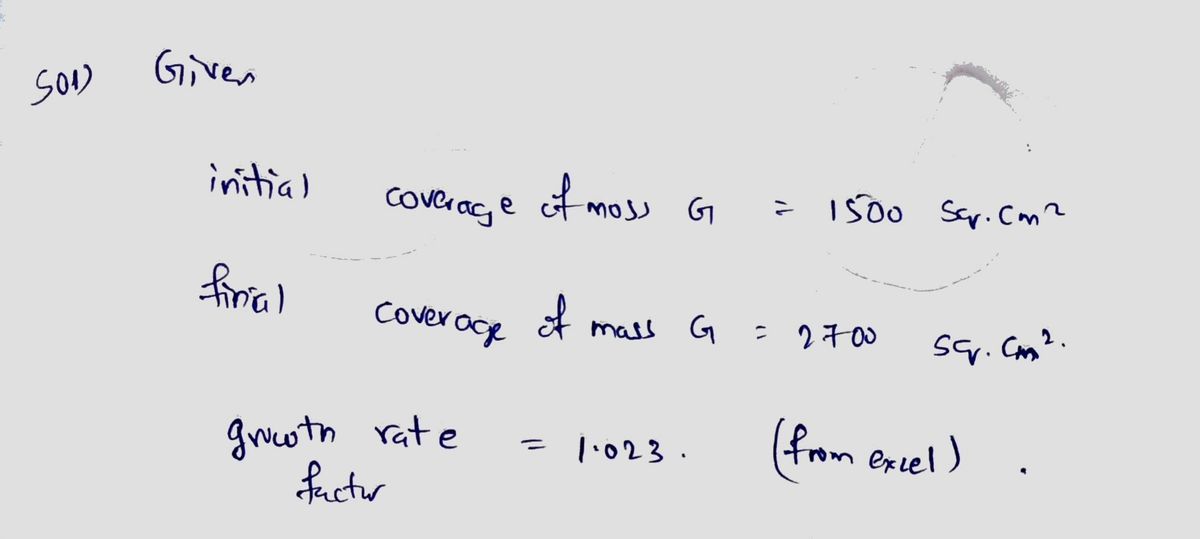 Sol) Given
initial coverage of moss G = 1500 Sq. Cm²
final coverage of mass G = 2700 sq. Cm².
growth rate = 1.023. (from excel).
factor